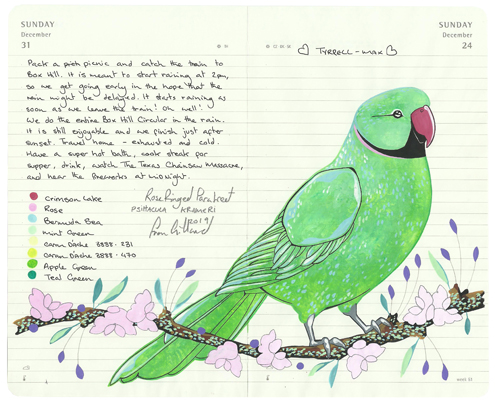 SUNDAY
December
31
Pack a posh picnic and catch the train to
Box Hill. It is meant to start raining at 2pm,
so we get going early in the hope that the
rain might be delayed. It starts raining as
soon as we leave the train! Oh well!
We do the entire Box Hill Circular in the rain.
It is still enjoyable and we finish just after
sunset. Travel home - exhausted and cold.
Have a super hot bath, cook steak for
supper, drink, watch The Texas Chainsaw Massacre,
and hear the fireworks at midnight.
Crimson Lake
Rose
Bermuda Sea
Mint Green
caran d'ache 3888 · 231
caran d'ache 3888 · 470
Apple Green
Teal Green
Rose Ringed Parakeet
PSITTACULA KRAMERI
2019
SUNDAY
December
24
TYRRELL - WAX
week 51